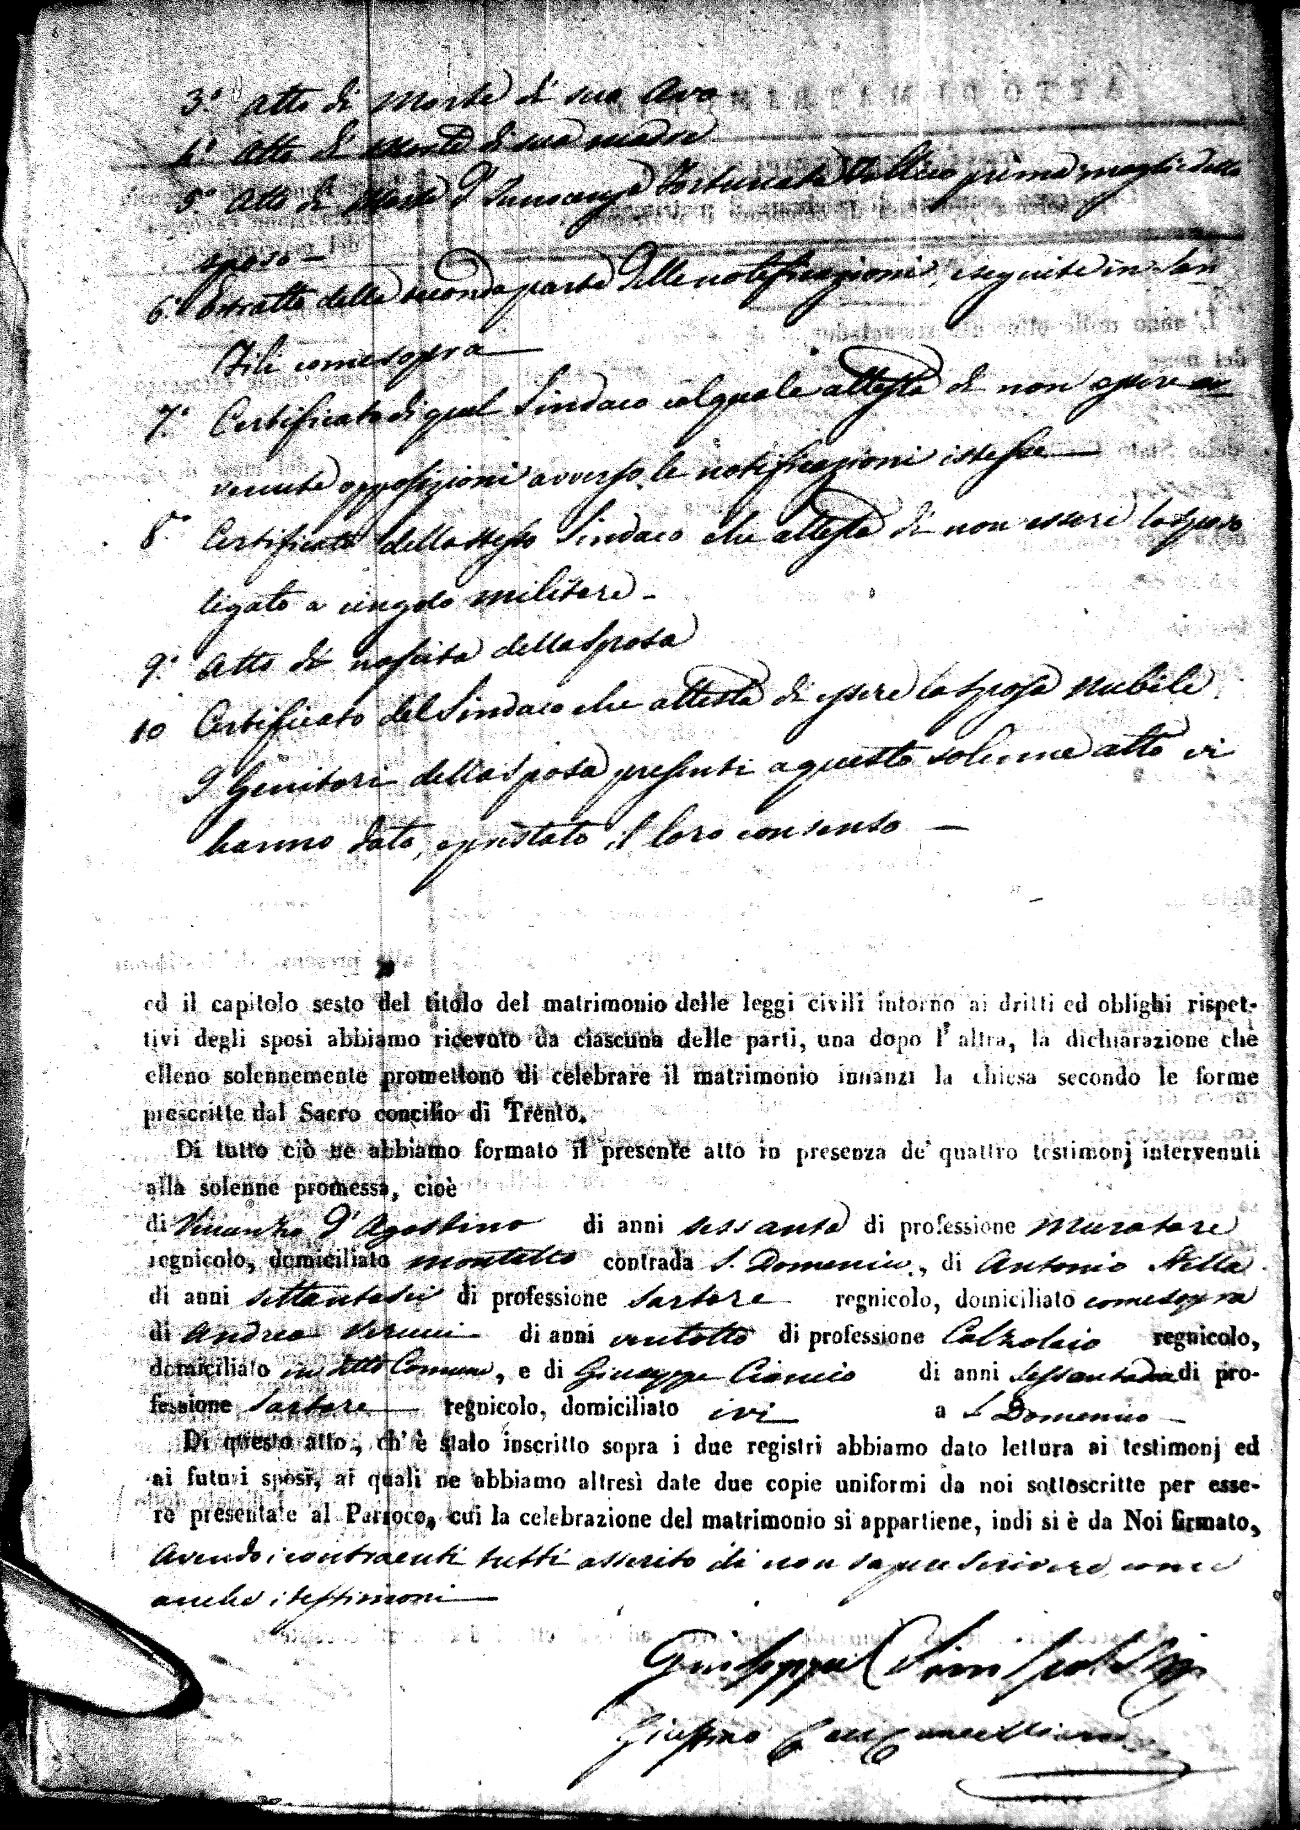 3.° Atto di Morte di suo Avo
4.° Atto di Morte di sua madre
5.° Atto di Morte d' Fortunata prima moglie dello
sposo —
6.° Estratto della seconda parte delle notificazioni, eseguite in San
Fili come sopra —
7.° Certificato di quel Sindaco col quale attesta di non essere av-
venute opposizioni avverso le notificazioni istesse —
8.° Certificato dello stesso Sindaco che attesta di non essere lo sposo
ligato a cingolo militare —
9.° Atto di nascita della sposa
10 Certificato del Sindaco che attesta di essere la sposa nubile
I Genitori della sposa presenti a questo solenne atto vi
hanno dato, e prestato il loro consenso —
ed il capitolo sesto del titolo del matrimonio delle leggi civili intorno ai dritti ed oblighi rispet-
tivi degli sposi abbiamo ricevuto da ciascuna delle parti, una dopo l' altra, la dichiarazione che
elleno solennemente promettono di celebrare il matrimonio innanzi la chiesa secondo le forme
prescritte dal Sacro concilio di Trento.
Di tutto ciò ne abbiamo formato il presente atto in presenza de' quattro testimonj intervenuti
alla solenne promessa, cioè
di Vincenzo d' Agostino di anni sessanta di professione Muratore
regnicolo, domiciliato Montalto contrada S. Domenico, di Antonio Stella
di anni settantasei di professione Sartore regnicolo, domiciliato come sopra
di Andrea di anni ventotto di professione Calzolaio regnicolo,
domiciliato in detto Comune, e di Giuseppe di anni di pro-
fessione Sartore regnicolo, domiciliato ivi a S. Domenico —
Di questo atto, ch' è stato inscritto sopra i due registri abbiamo dato lettura ai testimonj ed
ai futuri sposi, ai quali ne abbiamo altresì date due copie uniformi da noi sottoscritte per esse-
re presentate al Parroco, cui la celebrazione del matrimonio si appartiene, indi si è da Noi firmato,
Avendo i contraenti tutti asserito di non sapere scrivere come
anche i testimoni —
Giuseppe
Cancelliere